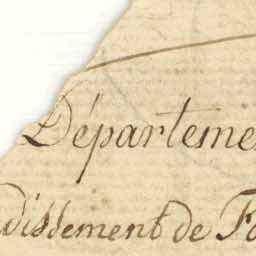 Départeme
dissement de Fo